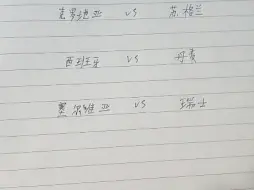 克罗地亚 vs 苏格兰
西班牙 vs 丹麦
塞尔维亚 vs 瑞士